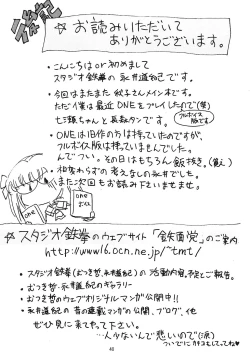 後記
☆ お読みいただいて
ありがとうございます。
・こんにちは or 初めまして
スタジオ鉄拳の永井道紀です。
・今回はまたまた 紋子さんメイン本です。
ただ僕は最近 ONEをプレイしたので(笑)
七瀬ちゃんと長森タンです。
フルボイス版です
・ONEは旧作の方は持っていたのですが、
フルボイス版は持っていませんでした。
んでつい。その日はもちろん飯抜き。
相変わらずの考えなしの永井でした。
また次回もお読み下さいませませ。
one
☆ スタジオ鉄拳のウェブサイト「鉄直党」のご案内
http://www16.ocn.ne.jp/~tmt/
・スタジオ鉄拳(おつき哲、永井道紀)の活動内容、予定とご報告。
・おつき哲、永井道紀のギャラリー
・おつき哲のウェブオリジナルマンガ公開中!!
・永井道紀の昔の連載マンガの公開、ブログ、他
ぜひ見に来てやって下さい。
…人少ないんで悲しいので(涙)
ついでにカキコもしてってね♥